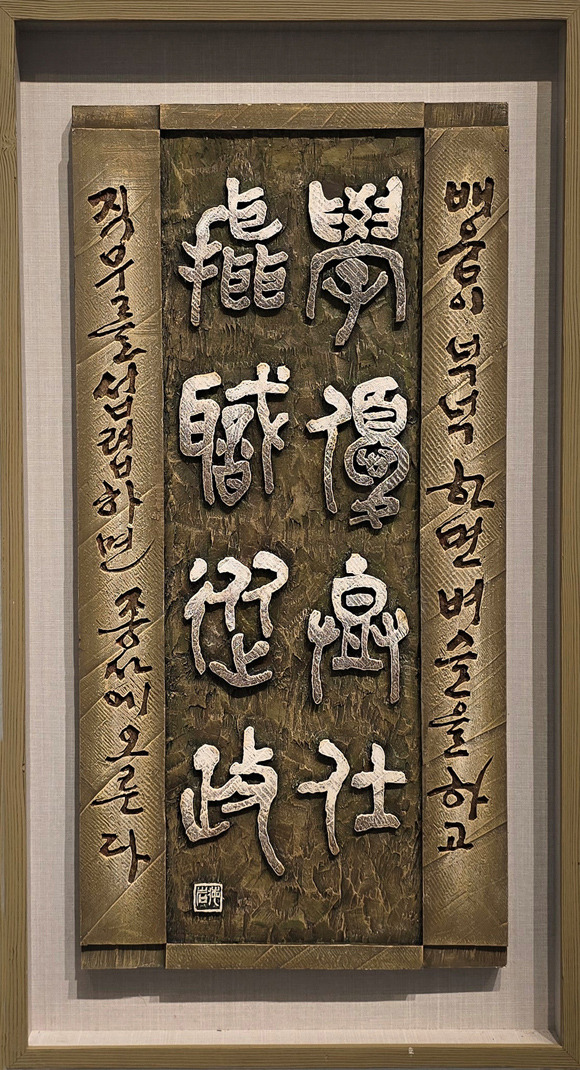 배움이 넉넉하면 벼슬을 하고
學優登仕
攝職從政
직무를 섭렵하면 종사에 오른다